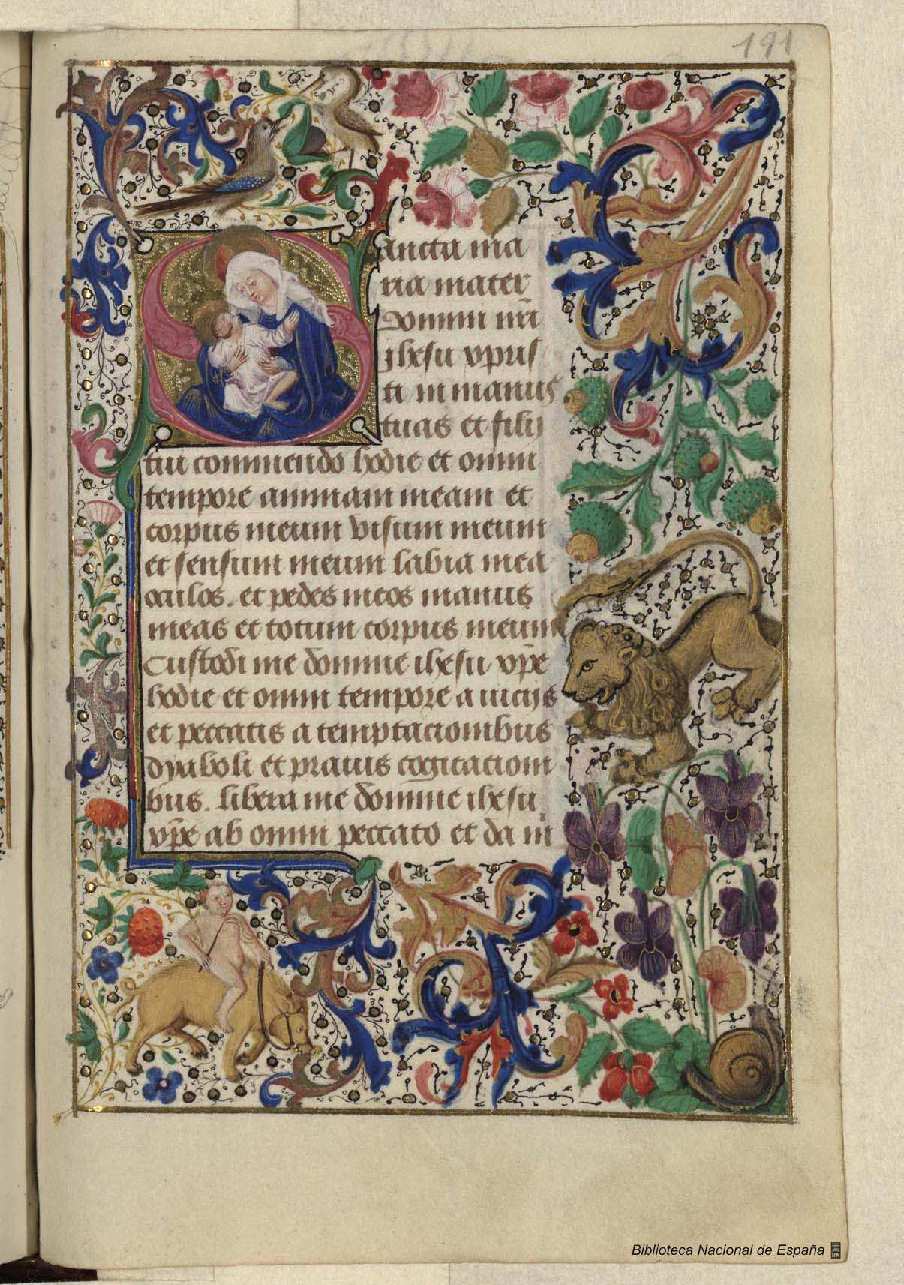 191
Sancta ma
ria mater
domini nr̄i
ihesu xpris
ti in manus
tuas et filii
tui commendo hodie et omni
tempore animam meam et
corpus meum visum meum
et sensum meum labia mea
oculos. et pedes meos manus
meas et totum corpus meum
Custodi me domine ihesu xp̄e
hodie et omni tempore a viciis
et peccatis a temptacionibus
dyaboli et prauis cogitacioni
bus. libera me domine ihesu
xp̄e ab omni peccato et da m̄
Biblioteca Nacional de España